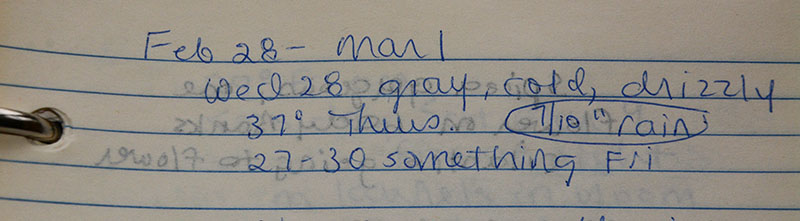 Feb 28 - Mar 1
Wed 28 gray, cold, drizzly
37° Thurs. 7/10" rain
27-30 something Fri.